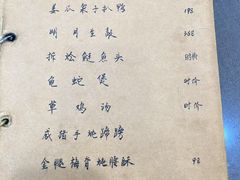 姜瓜栗子扒鸭 198
明月生敲 368
拆烩鲢鱼头 时价
龟蛇煲 时价
草鸡汤 时价
咸猪手炖蹄膀
金腿梅脊桃腰酥 98